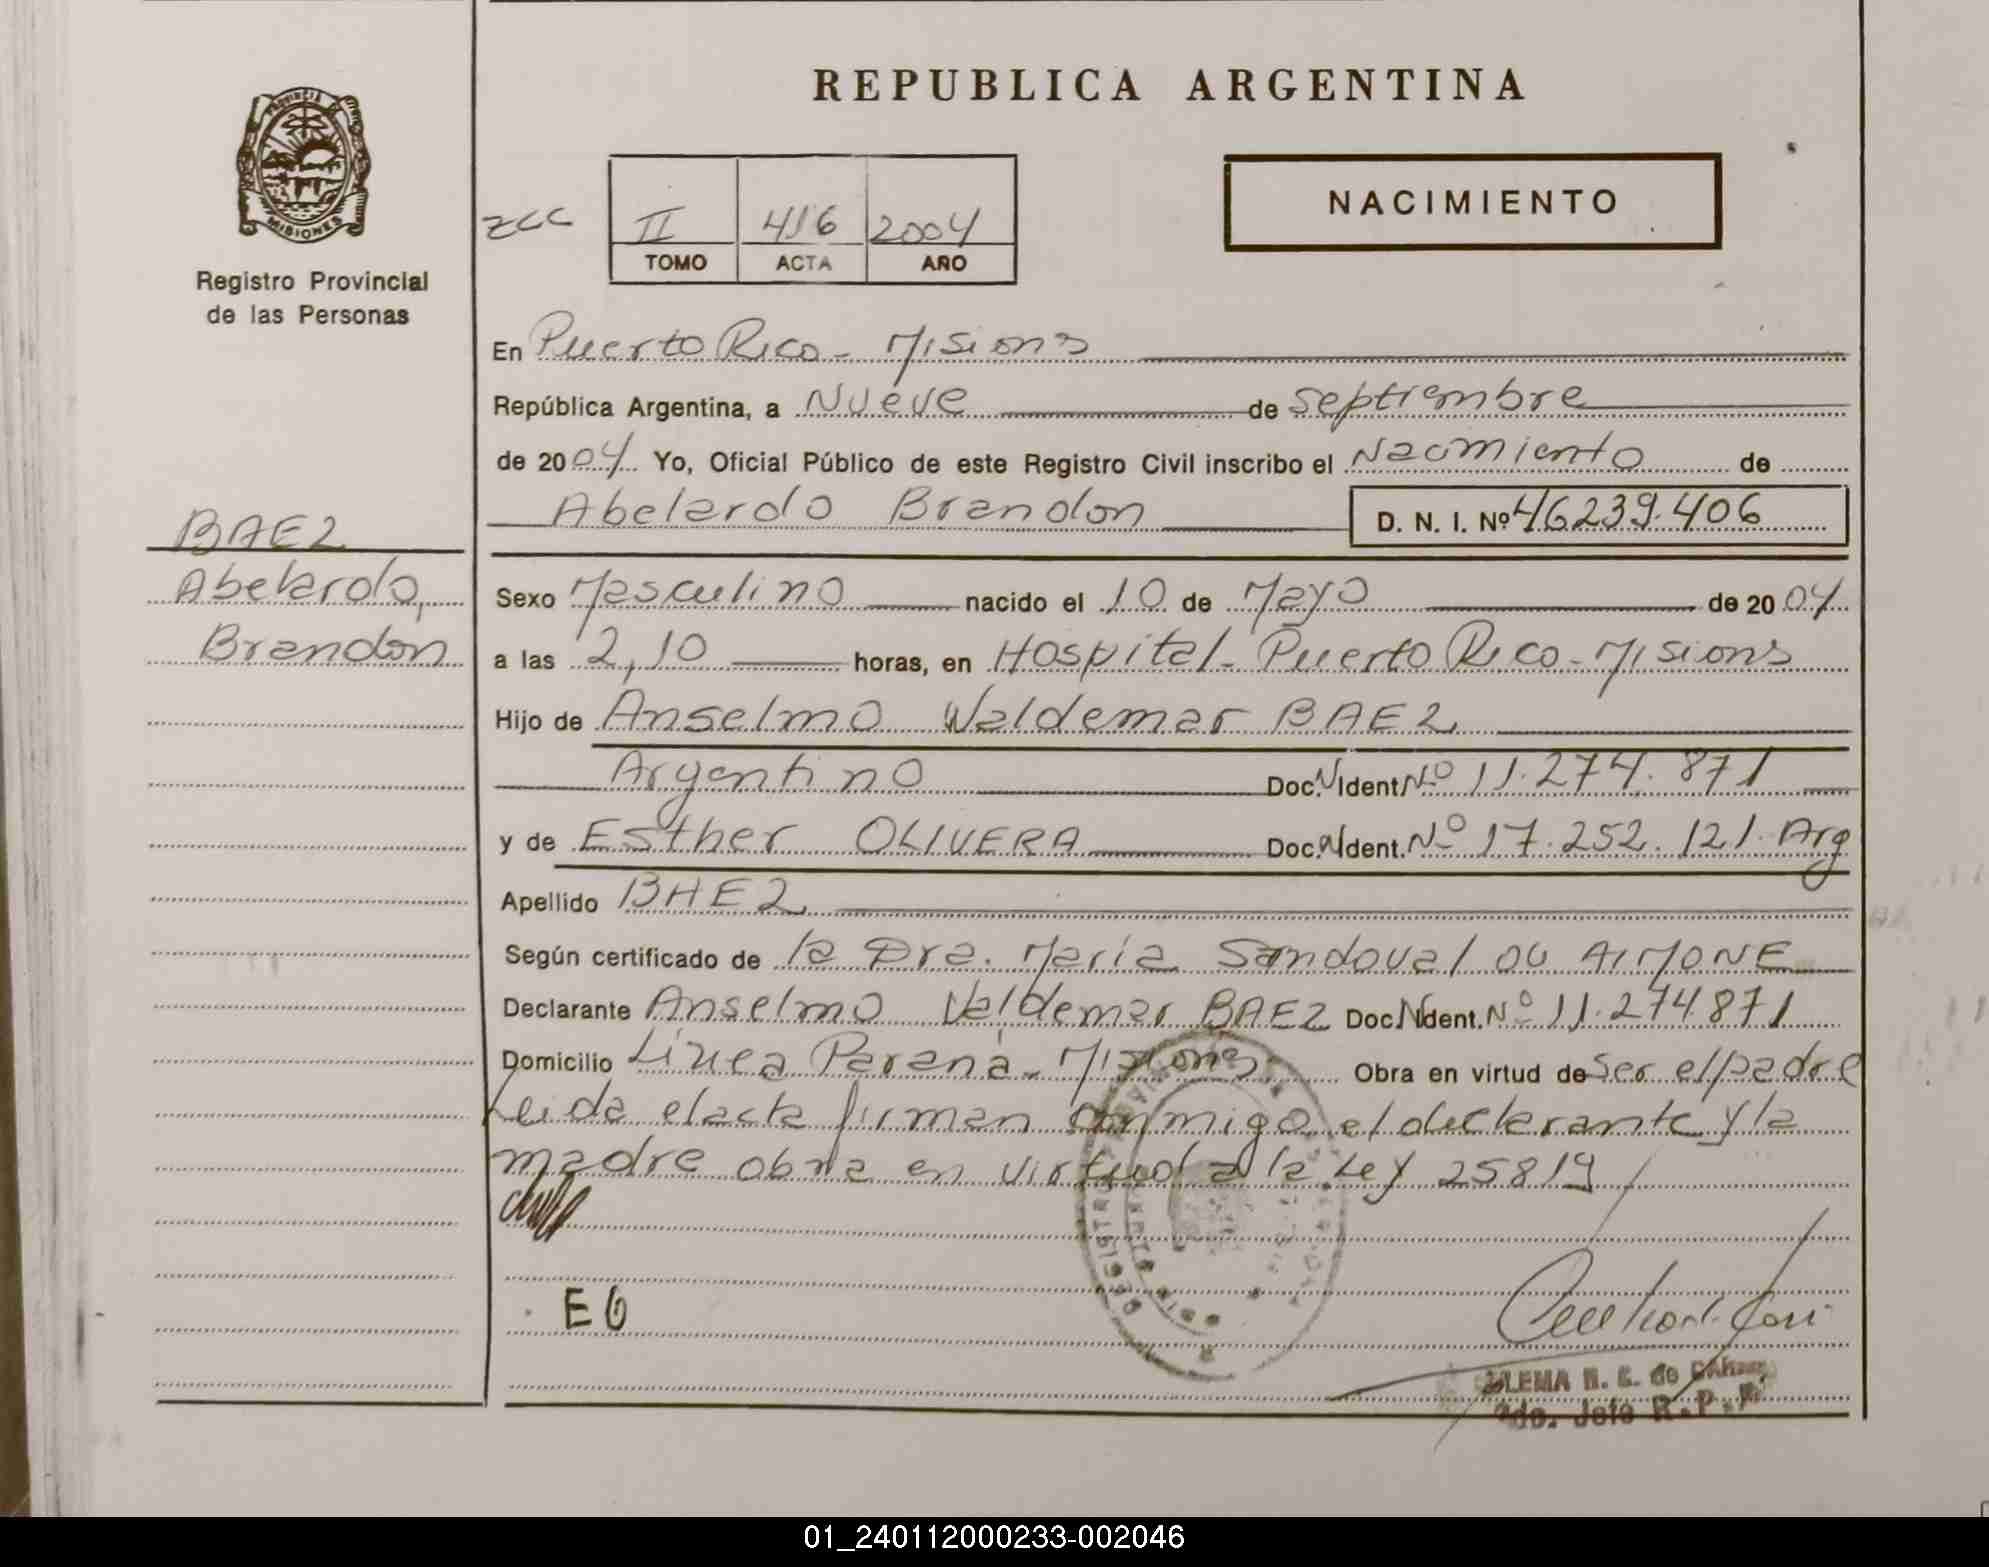 REPUBLICA ARGENTINA
PROVINCIA DE MISIONES
Registro Provincial
de las Personas
NACIMIENTO
II 416 2004
TOMO ACTA AÑO
En Puerto Rico - Misions
República Argentina, a Nueve de Septiembre
de 2004 Yo, Oficial Público de este Registro Civil inscribo el Nacimiento de
Abelardo Brandon D. N. I. Nº 46239.406
BAEZ
Abelardo,
Brandon
Sexo Masculino nacido el 10 de Mayo de 2004
a las 2,10 horas, en Hospital - Puerto Rico - Misions
Hijo de Anselmo Waldemar BAEZ
Argentino Doc. N Ident Nº 11.274.871
y de Esther OLIVERA Doc. N Ident. Nº 17.252.121. Arg
Apellido BAEZ
Según certificado de la Dra. María Sandoval de AIMONE
Declarante Anselmo Valdemar BAEZ Doc. N Ident. Nº 11.274.871
Domicilio Línea Paraná - Misions Obra en virtud de Ser el padre
Leida el acta firman conmigo el declarante y la
madre obra en virtud a la Ley 25819
EO
R. P. P.
01_240112000233-002046